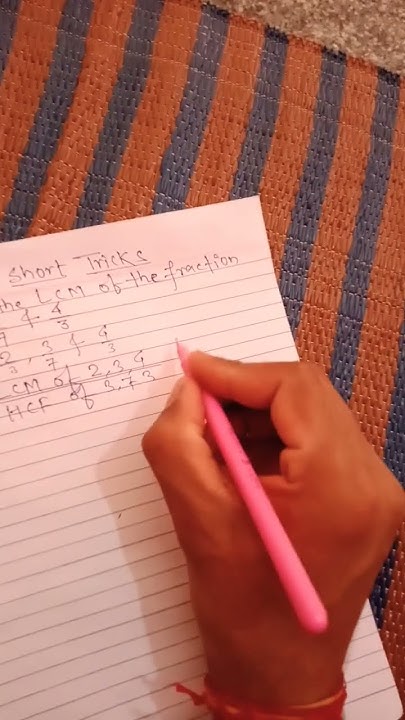 Short Tricks
the LCM of the fraction
& 4/3
2/3, 3/7 & 4/3
LCM of 2,3,4
HCF of 3,7 3